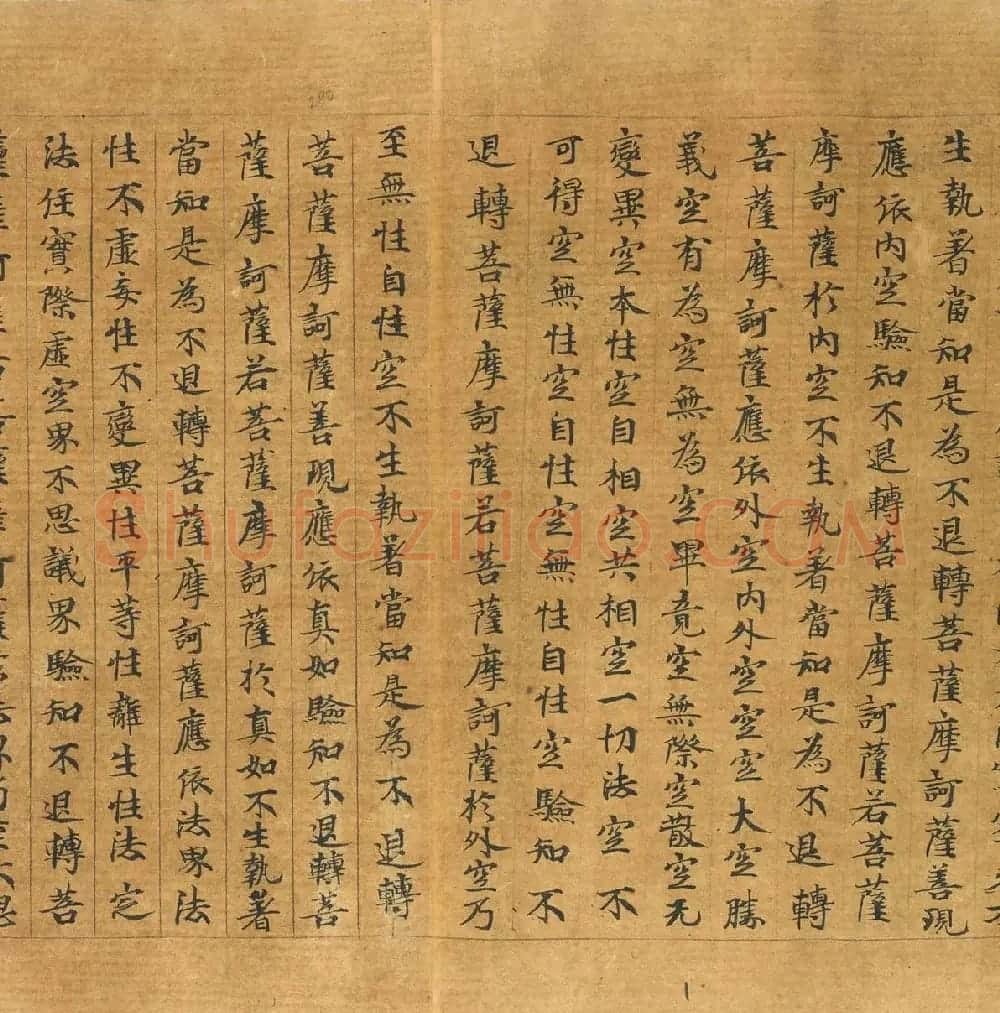 生執著當知是為不退轉菩薩摩訶薩善現
應依內空驗知不退轉菩薩摩訶薩若菩薩
摩訶薩於內空不生執著當知是為不退轉
菩薩摩訶薩應依外空內外空空空大空勝
義空有為空無為空畢竟空無際空散空无
變異空本性空自相空共相空一切法空不
可得空無性空自性空無性自性空驗知不
退轉菩薩摩訶薩若菩薩摩訶薩於外空乃
至無性自性空不生執著當知是為不退轉
菩薩摩訶薩善現應依真如驗知不退轉菩
薩摩訶薩若菩薩摩訶薩於真如不生執著
當知是為不退轉菩薩摩訶薩應依法界法
性不虛妄性不變異性平等性離生性法定
法住實際虛空界不思議界驗知不退轉菩
Shufaziliao.COM